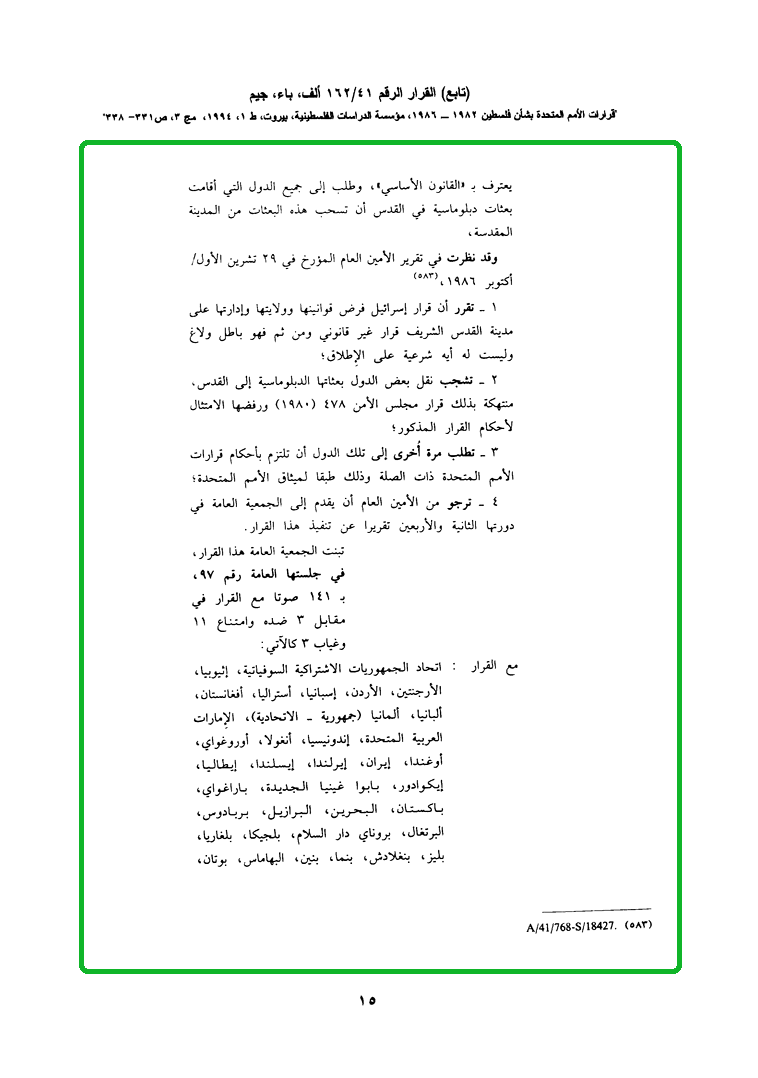 (تابع) القرار الرقم ١٦٢/٤١ ألف، باء، جيم
"قرارات الأمم المتحدة بشأن فلسطين ١٩٨٢ ــ ١٩٨٦، مؤسسة الدراسات الفلسطينية، بيروت، ط ١، ١٩٩٤، مج ٣، ص٣٣١- ٣٣٨"
يعترف بـ «القانون الأساسي»، وطلب إلى جميع الدول التي أقامت
بعثات دبلوماسية في القدس أن تسحب هذه البعثات من المدينة
المقدسة،
وقد نظرت في تقرير الأمين العام المؤرخ في ٢٩ تشرين الأول/
أكتوبر ١٩٨٦،(٥٨٣)
١ ـ تقرر أن قرار إسرائيل فرض قوانينها وولايتها وإدارتها على
مدينة القدس الشريف قرار غير قانوني ومن ثم فهو باطل ولاغ
وليست له أيه شرعية على الإطلاق؛
٢ ـ تشجب نقل بعض الدول بعثاتها الدبلوماسية إلى القدس،
منتهكة بذلك قرار مجلس الأمن ٤٧٨ (١٩٨٠) ورفضها الامتثال
لأحكام القرار المذكور؛
٣ ـ تطلب مرة أُخرى إلى تلك الدول أن تلتزم بأحكام قرارات
الأمم المتحدة ذات الصلة وذلك طبقا لميثاق الأمم المتحدة؛
٤ ـ ترجو من الأمين العام أن يقدم إلى الجمعية العامة في
دورتها الثانية والأربعين تقريرا عن تنفيذ هذا القرار.
تبنت الجمعية العامة هذا القرار،
في جلستها العامة رقم ٩٧،
بـ ١٤١ صوتا مع القرار في
مقابل ٣ ضده وامتناع ١١
وغياب ٣ كالآتي:
مع القرار : اتحاد الجمهوريات الاشتراكية السوفياتية، إثيوبيا،
الأرجنتين، الأردن، إسبانيا، أستراليا، أفغانستان،
ألبانيا، ألمانيا (جمهورية ـ الاتحادية)، الإمارات
العربية المتحدة، إندونيسيا، أنغولا، أوروغواي،
أوغندا، إيران، إيرلندا، إيسلندا، إيطاليا،
إيكوادور، بابوا غينيا الجديدة، باراغواي،
باكستان، البحرين، البرازيل، بربادوس،
البرتغال، بروناي دار السلام، بلجيكا، بلغاريا،
بليز، بنغلادش، بنما، بنين، البهاماس، بوتان،
(٥٨٣) A/41/768-S/18427.
١٥